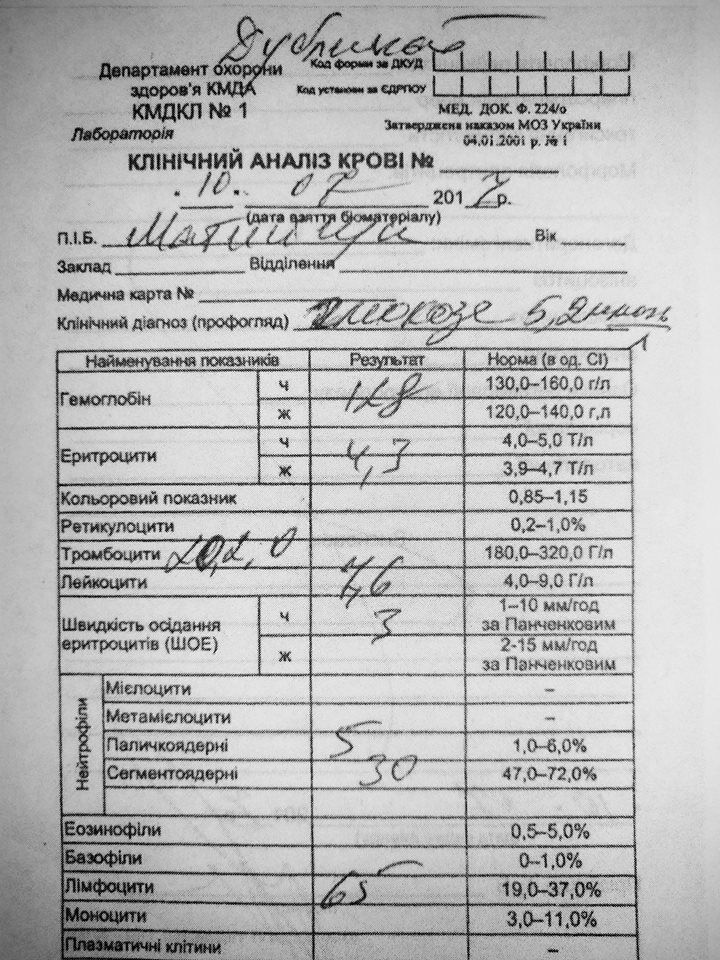 Дублікат
Департамент охорони
здоров'я КМДА
КМДКЛ № 1
Лабораторія
Код форми за ДКУД
Код установи за ЄДРПОУ
МЕД. ДОК. Ф. 224/о
Затверджена наказом МОЗ України
04.01.2001 р. № 1
КЛІНІЧНИЙ АНАЛІЗ КРОВІ №
" 10 " 07 2017 р.
(дата взяття біоматеріалу)
П.І.Б. Вік
Заклад Відділення
Медична карта №
Клінічний діагноз (профогляд) глюкоза 5,2
Найменування показників Результат Норма (в од. СІ)
Гемоглобін ч 128 130,0–160,0 г/л
ж 120,0–140,0 г,л
Еритроцити ч 4,3 4,0–5,0 Т/л
ж 3,9–4,7 Т/л
Кольоровий показник 0,85–1,15
Ретикулоцити 0,2–1,0%
Тромбоцити 180,0–320,0 Г/л
Лейкоцити 7,6 4,0–9,0 Г/л
Швидкість осідання еритроцитів (ШОЕ) ч 3 1–10 мм/год за Панченковим
ж 2-15 мм/год за Панченковим
Нейтрофіли
Мієлоцити –
Метамієлоцити –
Паличкоядерні 5 1,0–6,0%
Сегментоядерні 30 47,0–72,0%
Еозинофіли 0,5–5,0%
Базофіли 0–1,0%
Лімфоцити 65 19,0–37,0%
Моноцити 3,0–11,0%
Плазматичні клітини –